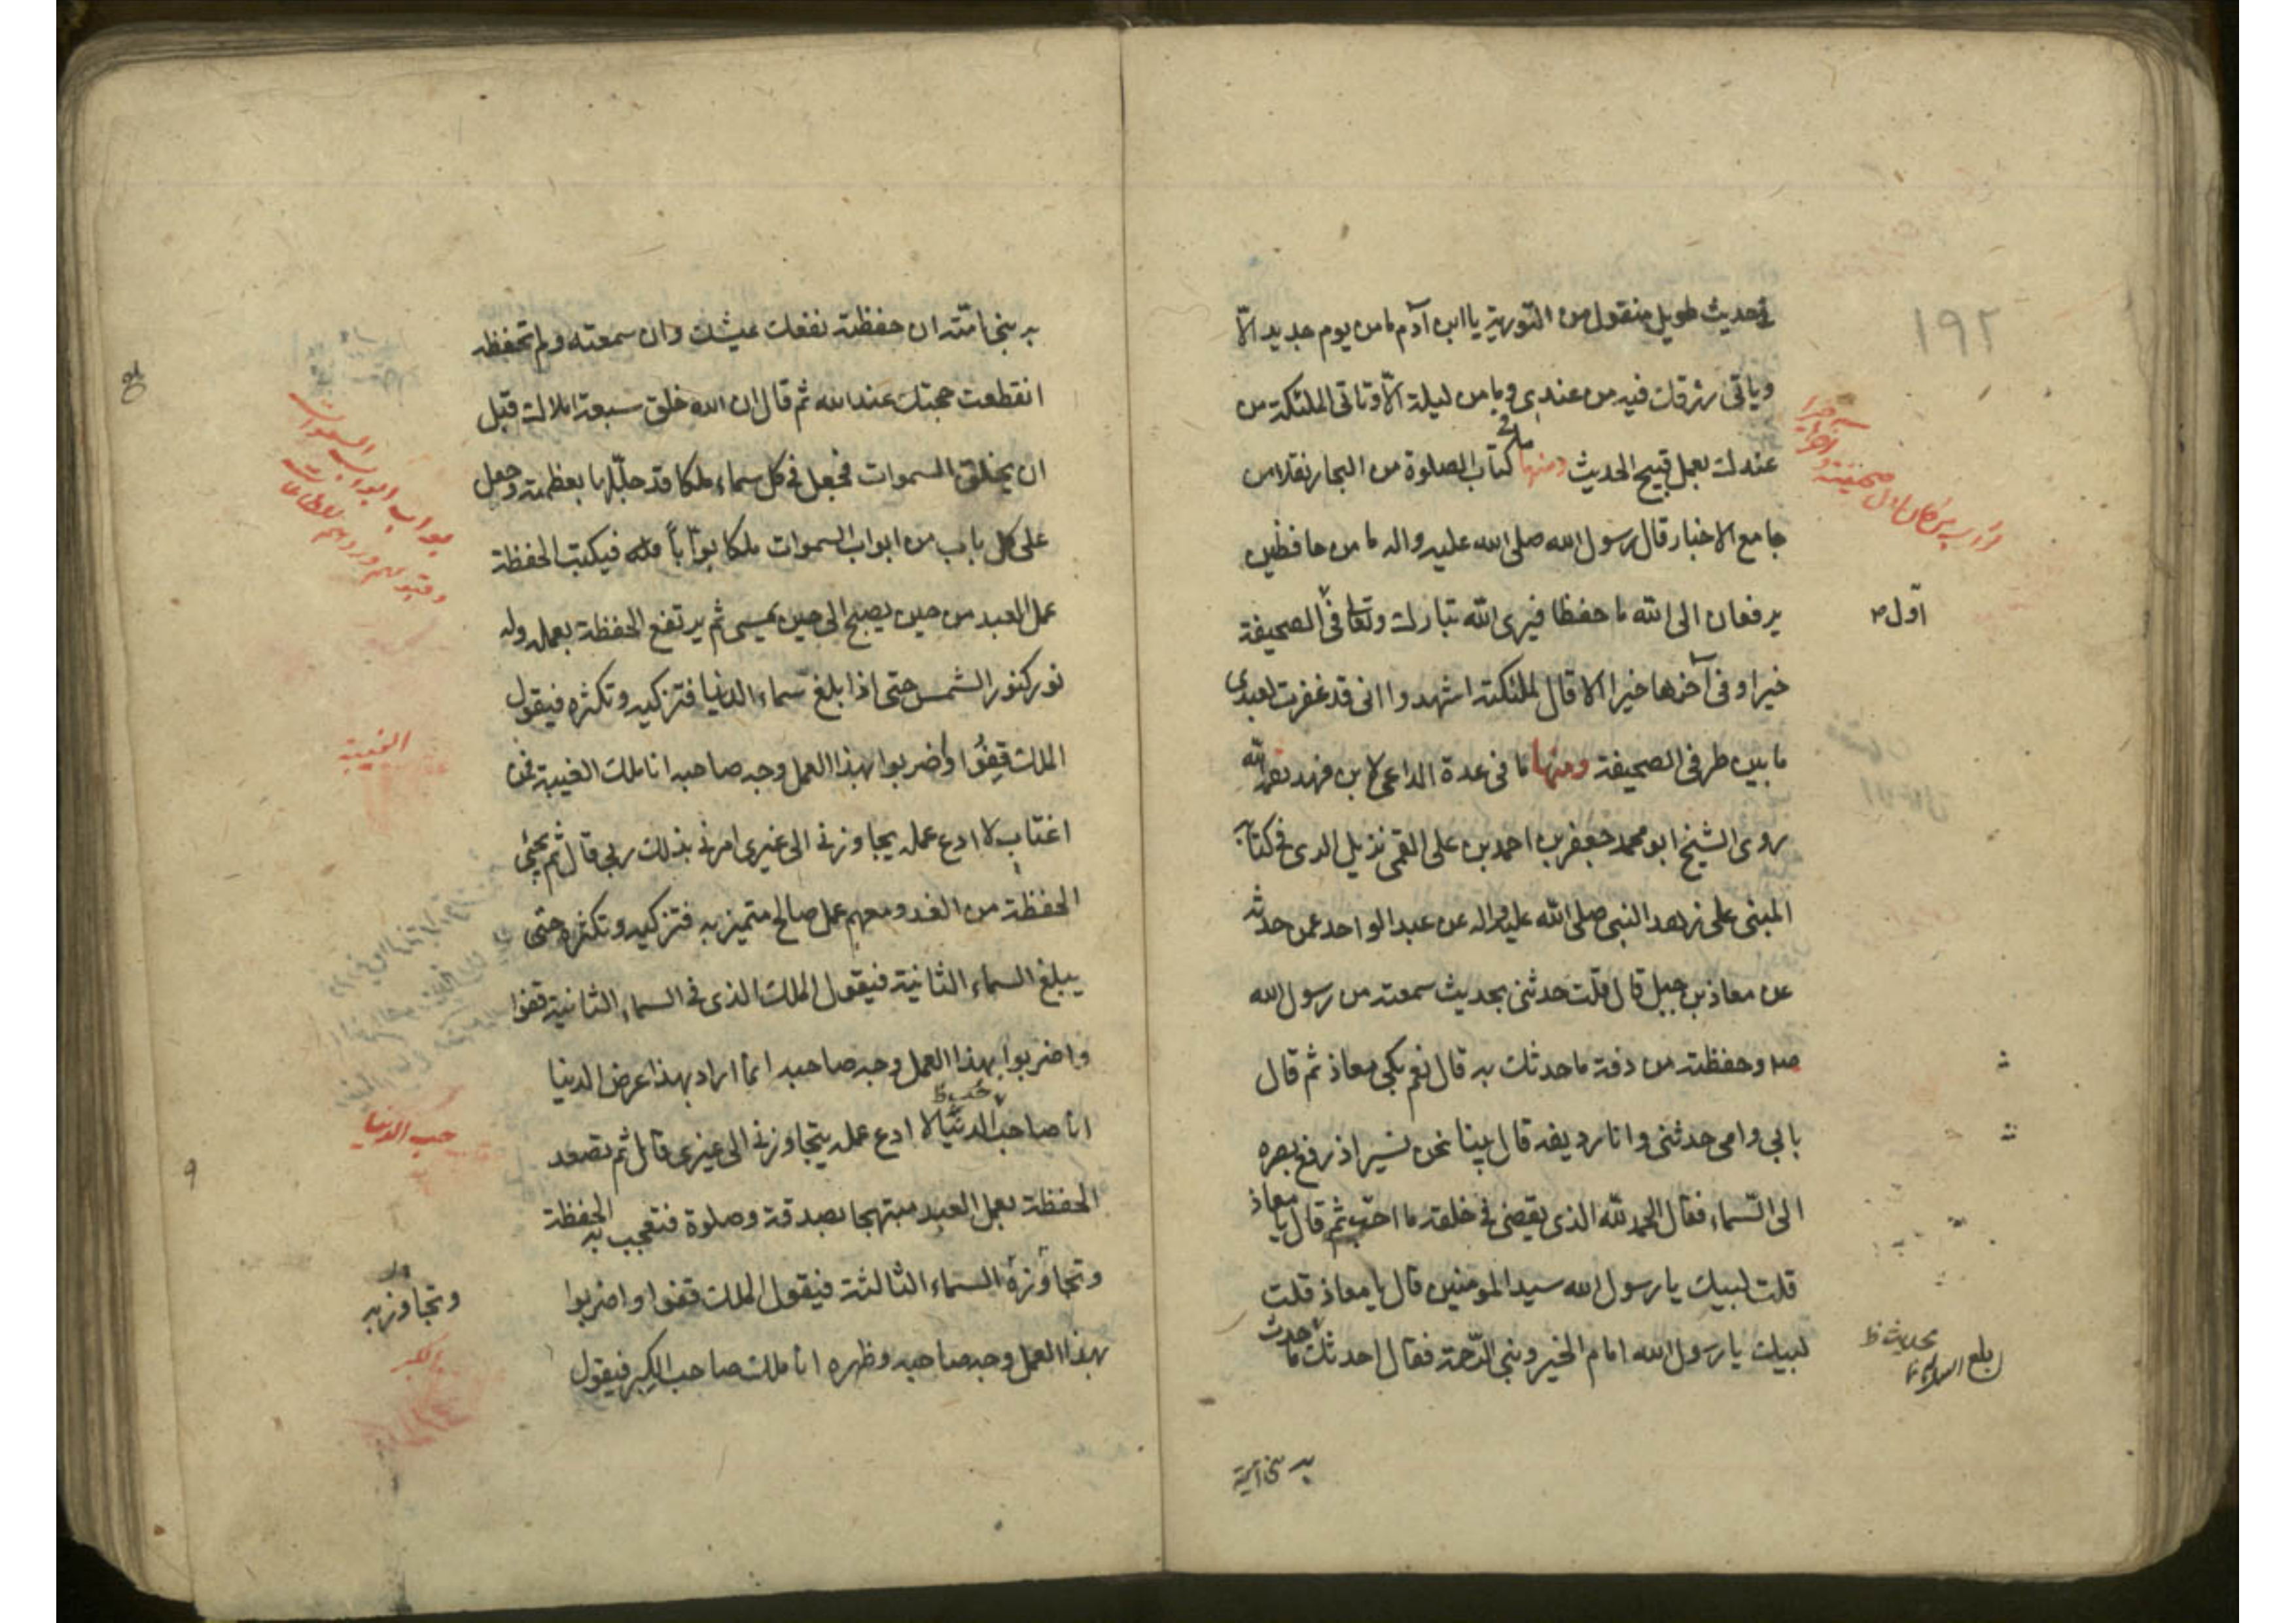 ١٩٢
في حديث طويل منقول من التورية يا ابن آدم ما من يوم جديد الّا
وياتي رزقك فيه من عندي وما من ليلة الّا وتاتي الملئكة من
عندك بعمل قبيح الحديث ومنها ما في كتاب الصلوة من البحار نقلا من
جامع الاخبار قال رسول الله صلى الله عليه واله ما من حافظين
يرفعان الى الله ما حفظا فيرى الله تبارك وتعالى في الصحيفة
اوّل
خيرا وفي آخرها خيرا الا قال لملئكته اشهدوا اني قد غفرت لعبدي
ما بين طرفي الصحيفة ومنها ما في عدة الداعي لابن فهد
روى الشيخ ابو محمد جعفر بن احمد بن علي القمي نزيل الري في كتابه
المبني على زهد النبي صلى الله عليه واله عن عبد الواحد عمن حدثه
عن معاذ بن جبل قال قلت حدثني بحديث سمعته من رسول الله
وحفظته من دقة ما حدثك به قال نعم بكى معاذ ثم قال
بابي وامي حدثني وانا رديفه قال بينا نحن نسير اذ رفع بصره
الى السماء فقال الحمد لله الذي يقضي في خلقه ما احب ثم قال يا معاذ
قلت لبيك يا رسول الله سيد المومنين قال يا معاذ قلت
لبيك يا رسول الله امام الخير ونبي الرّحمة فقال احدثك ما حدث
به نبي امته
به نبي امته ان حفظته نفعك عيشك وان سمعته ولم تحفظه
انقطعت حجتك عند الله ثم قال ان الله خلق سبعة املاك قبل
ان يخلق السموات فجعل في كل سماء ملكا قد جلّلها بعظمته وجعل
على كل باب من ابواب السموات ملكا بوّاباً فيكتب الحفظة
عمل العبد من حين يصبح الى حين يمسي ثم يرتفع الحفظة بعمله وله
نور كنور الشمس حتى اذا بلغ سماء الدنيا فتزكيه وتكثره فيقول
الملك قِفُوا واضربوا بهذا العمل وجه صاحبه انا ملك الغيبة فمن
الغيبة
اغتاب لا ادع عمله يجاوزني الى غيري امرني بذلك ربي قال ثم يجيء
الحفظة من الغد ومعهم عمل صالح متميز به فتزكيه وتكثره حتى
يبلغ السماء الثانية فيقول الملك الذي في السماء الثانية قفوا
واضربوا بهذا العمل وجه صاحبه انما اراد بهذا عرض الدنيا
انا صاحب الدنيا لا ادع عمله يتجاوزني الى غيري قال ثم تصعد
حب الدنيا
الحفظة بعمل العبد مبتهجا بصدقة وصلوة فتعجب به الحفظة
وتجاوزه السماء الثالثة فيقول الملك قفوا واضربوا
وتجاوز به
بهذا العمل وجه صاحبه وظهره انا ملك صاحب الكبر فيقول
الكبر